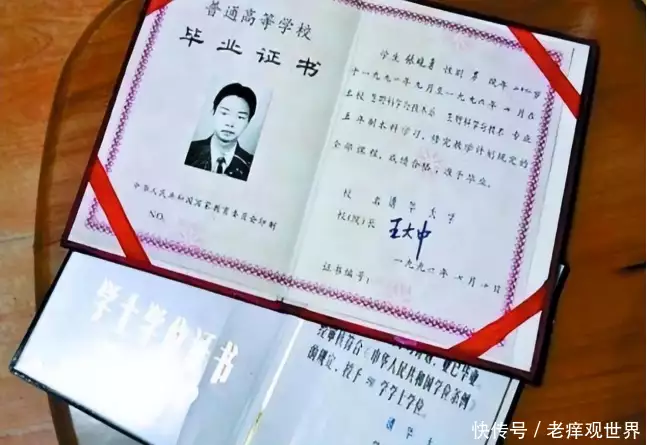 普通高等学校
毕业证书
中华人民共和国国家教育委员会印制
NO.
学生 张晓勇 性别 男 现年 二十四岁
于一九九一年九月至一九九六年七月在
本校 生物科学与技术系 生物科学与技术 专业
五年制本科学习，修完教学计划规定的
全部课程，成绩合格，准予毕业。
校 名 清华大学
校(院)长 王大中
一九九 年七月 日
证书编号：
学士学位证书
业已毕业，
经审核符合《中华人民共和国学位条例》
的规定，授予 学学士学位。
清华
快传号／老痒观世界